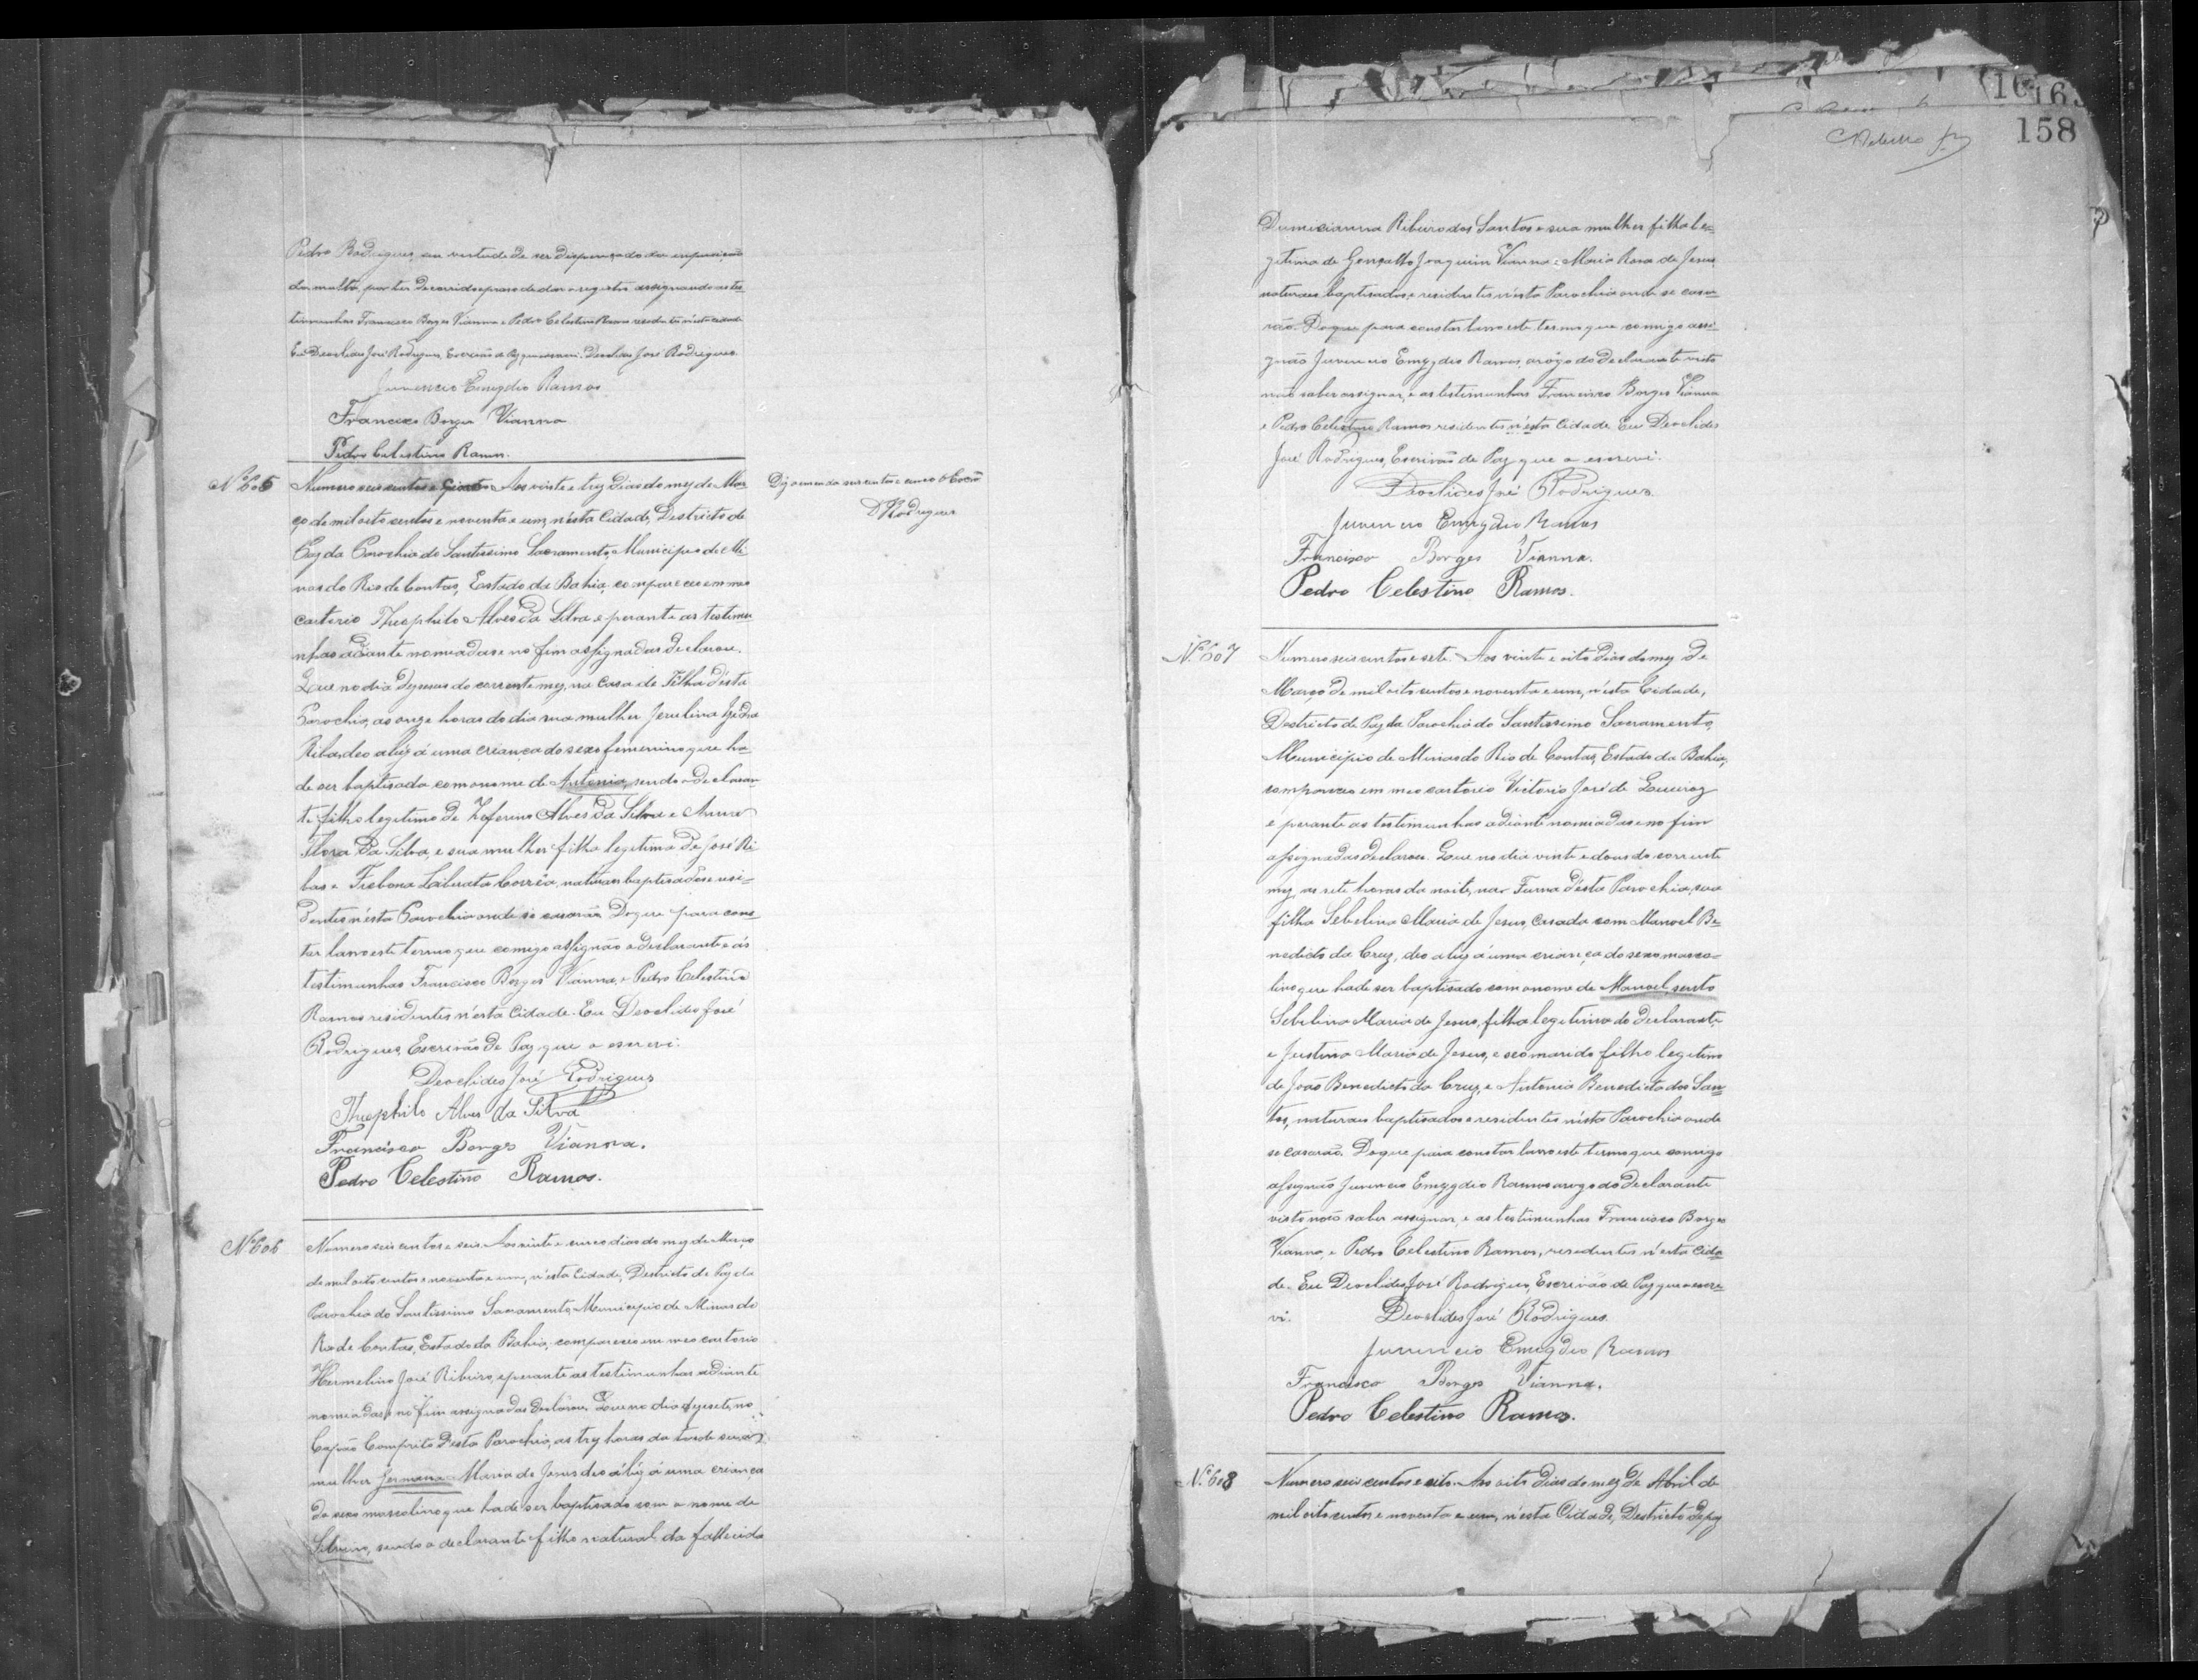 Pedro Rodrigues, em vertude de ser dispençado da imposição
da multa, por ter decorrido o praso de dar o registro assignando as tes-
timunhas Francisco Borges Vianna e Pedro Celestino Ramos residentes n'esta cidade
Eu Deoclides José Rodrigues, Escrivão de Paz que escrevi. Deoclides José Rodrigues.
Juvencio Emygdio Ramos
Francisco Borges Vianna
Pedro Celestino Ramos.
Nº 605
Numero seis centos e Aos vinte e trez dias do mez de Mar-
ço de mil oito centos e noventa e um, n'ésta Cidade, Destricto de
Paz da Parochia do Santissimo Sacramento, Municipio de Mi-
nas do Rio de Contas, Estado da Bahia, compareceo em meo
cartorio Theophilo Alves da Silva e perante as testimu-
nhas adiante nomeadas e no fim assignadas declarou.
Que no dia dezeseis do corrente mez, na Casa de Telha d'ésta
Parochia, as onze horas do dia sua mulher Jesulina
Ribas, deo a luz á uma criança do sexo femenino que ha
de ser baptisada com o nome de Antonia, sendo o declaran-
te filho legitimo de Zeferino Alves da Silva e Anna
Flora da Silva, e sua mulher filha legitima de José Ri-
bas e Liberata Corrêa, naturaes baptisados e resi-
dentes n'ésta Parochia onde se casarão. Do que para cons-
tar lavro este termo que comigo assignão o declarante e ás
testimunhas Francisco Borges Vianna, e Pedro Celestino
Ramos residentes n'esta Cidade. Eu Deoclides José
Rodrigues, Escrivão de Paz que o escrevi.
Deoclides José Rodrigues
Theophilo Alves da Silva
Francisco Borges Vianna.
Pedro Celestino Ramos.
Digo emenda seis centos e cinco O Escrão
D Rodrigues
Nº 606
Numero seis centos e seis. Aos vinte e cinco dias do mez de Março
de mil oito centos e noventa e um, n'ésta Cidade, Destricto de Paz da
Parochia do Santissimo Sacramento, Municipio de Minas do
Rio de Contas, Estado da Bahia, compareceo em meo cartorio
Hermelino José Ribeiro, e perante as testimunhas adiante
nomeadas, e no fim assignadas declarou. Que no dia dezesete, no
Capão Comprito desta Parochia, as trez horas da tarde sua
mulher Jermana Maria de Jesus deo á luz á uma criança
do sexo mascolino que hade ser baptisado com o nome de
Silvino, sendo o declarante filho natural da fallecida
158
Dumicianna Ribeiro dos Santos e sua mulher filha le-
gitima de Gonçallo Joaquim Vianna e Maria Rosa de Jesus
naturaes baptisados e residentes n'ésta Parochia onde se casa-
rão. Do que para constar lavro este termo que comigo assi-
gnão Juvencio Emygdio Ramos, arôgo do declarante visto
não saber assignar, e as testimunhas Francisco Borges Vianna
e Pedro Celestino Ramos residentes n'ésta Cidade. Eu Deoclides
José Rodrigues, Escrivão de Paz que o escrevi.
Deoclides José Rodrigues.
Juvencio Emygdio Ramos
Francisco Borges Vianna.
Pedro Celestino Ramos.
Nº 607
Numero seis centos e sete. Aos vinte e oito dias do mez de
Março de mil oito centos e noventa e um, n'ésta Cidade,
Destricto de Paz da Parochia do Santissimo Sacramento,
Municipio de Minas do Rio de Contas, Estado da Bahia,
compareceo em meo cartorio Victorio José de Queiroz
e perante as testimunhas adiante nomiadas e no fim
assignadas declarou. Que no dia vinte e dous do corrente
mez, as sete horas da noite, na Furna d'ésta Parochia, sua
filha Sebelina Maria de Jesus, casada com Manoel Be-
nedicto da Cruz, deo a luz á uma criança do sexo masco-
lino que hade ser baptisado com o nome de Manoel, sendo
Sebelina Maria de Jesus, filha legitima do declarante,
e Justina Maria de Jesus, e seo marido filho legitimo
de João Benedicto da Cruz, e Antonia Benedicta dos San-
tos, naturaes baptisados e residentes n'ésta Parochia onde
se casarão. Do que para constar lavro este termo que comigo
assignão Juvencio Emygdio Ramos arogo do declarante
visto não saber assignar, e as testimunhas Francisco Borges
Vianna, e Pedro Celestino Ramos, residentes n'esta Cida-
de. Eu Deoclides José Rodrigues, Escrivão de Paz que o escre-
vi. Deoclides José Rodrigues.
Juvencio Emygdio Ramos
Francisco Borges Vianna.
Pedro Celestino Ramos.
Nº 608
Numero seis centos e oito. Aos oito dias do mez de Abril de
mil oito centos e noventa e um, n'ésta Cidade, Destricto de Paz